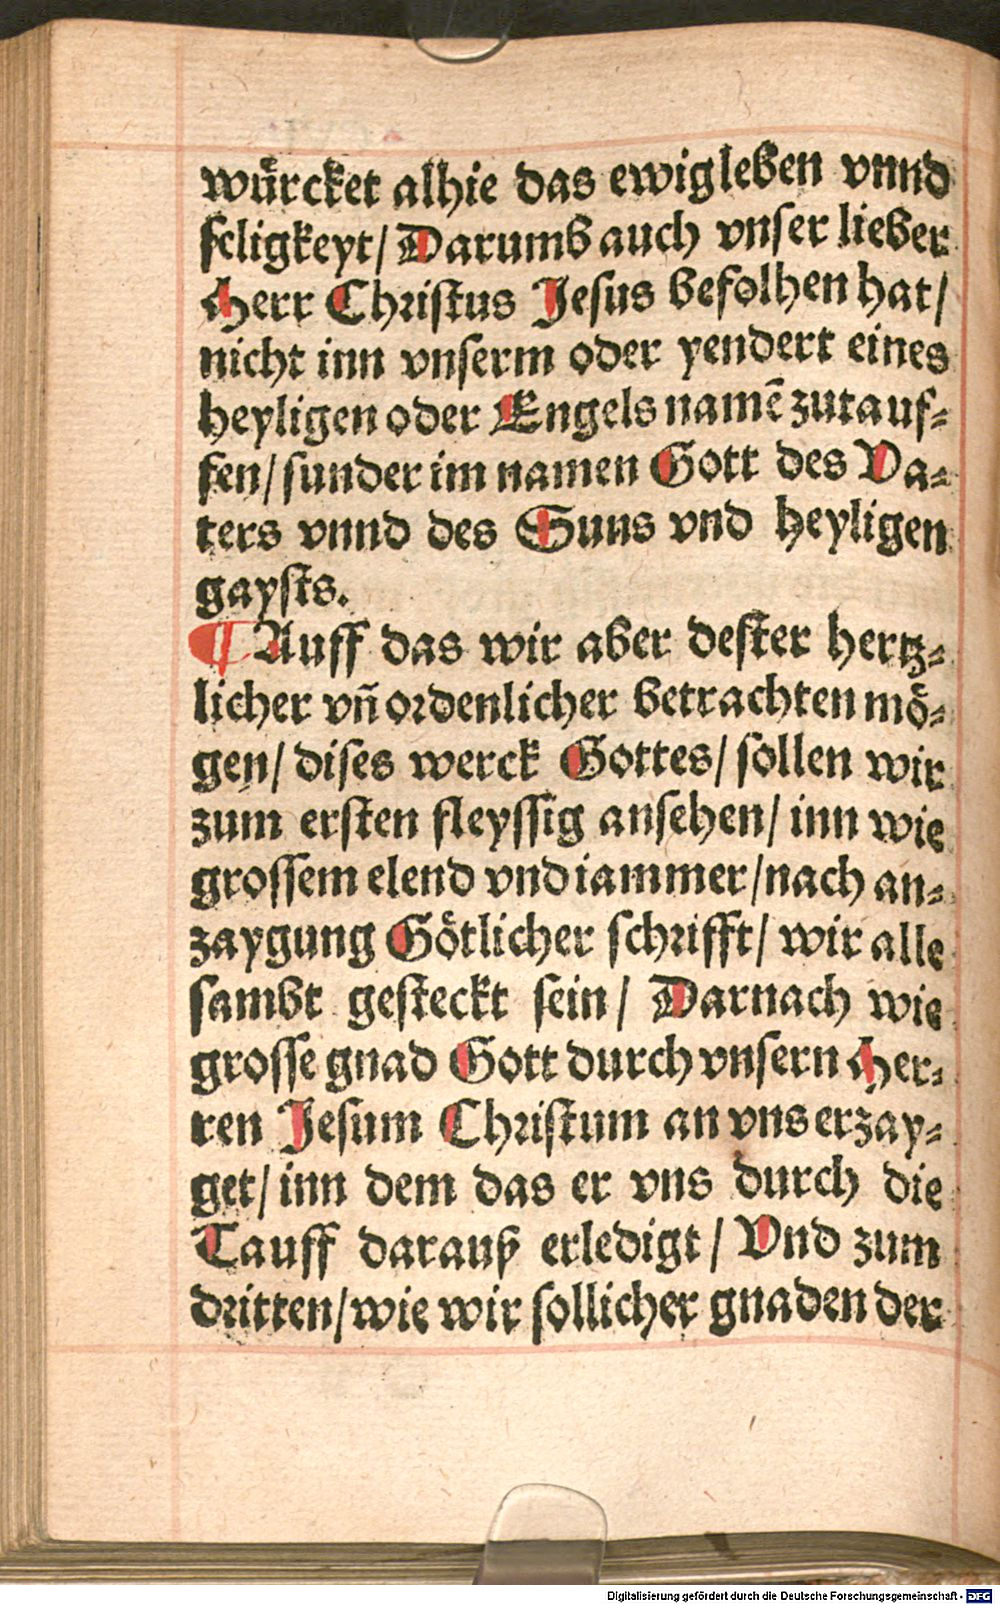 wuͤrcket alhie das ewig leben vnnd
seligkeyt/ Darumb auch vnser lieber
Herr Christus Jesus befolhen hat/
nicht inn vnserm oder yendert eines
heyligen oder Engels namē zutauf⸗
fen/ sunder im namen Gott des Va⸗
ters vnnd des Suns vnd heyligen
gaysts.
¶ Auff das wir aber dester hertz⸗
licher vñ ordenlicher betrachten moͤ⸗
gen/ dises werck Gottes/ sollen wir
zum ersten fleyssig ansehen/ inn wie
grossem elend vnd iammer/ nach an⸗
zaygung Goͤtlicher schrifft/ wir alle
sambt gesteckt sein/ Darnach wie
grosse gnad Gott durch vnsern Her⸗
ren Jesum Christum an vns erzay⸗
get/ inn dem das er vns durch die
Tauff darauß erledigt/ Vnd zum
dritten/ wie wir sollicher gnaden der
Digitalisierung gefördert durch die Deutsche Forschungsgemeinschaft - DFG